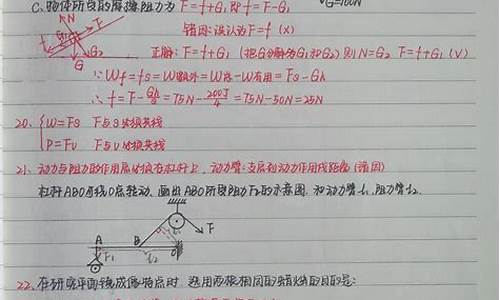 C. 物体所受的摩擦阻力为 F=f+G₁ 即 f=F-G₁
G=100N
N
G₂
G
错因:误认为F=f (×)
正解:F=f+G₁ (把G分解为G₁和G₂) 则N=G₂ F=f+G₁ (√)
∵ Wf=fs=W额外=W总-W有用=Fs-Gh
∴ f=F-Gh/s=75N-200J/4=75N-50N=25N
20. { W=Fs F与s必须共线
P=Fv F与v必须共线
21. 动力与阻力的作用点必须在杠杆上. 动力臂:支点到动力作用线距离(错因)
杠杆ABO可绕O点转动、画出ABO所受阻力F₂的示意图.和动力臂l₁.阻力臂l₂.
F
A B O
F₁ l₂
22. 在研究平面镜成像特点时 选用两根相同的蜡烛的目的是: